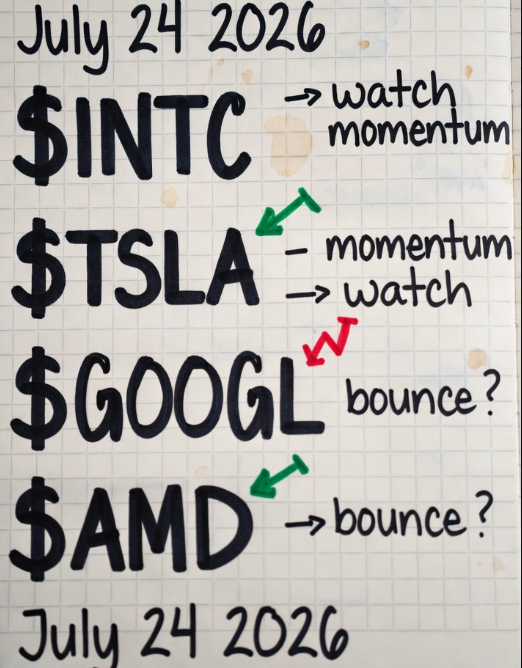 July 24 2026
$INTC → watch
momentum
$TSLA – momentum
→ watch
$GOOGL bounce?
$AMD → bounce?
July 24 2026